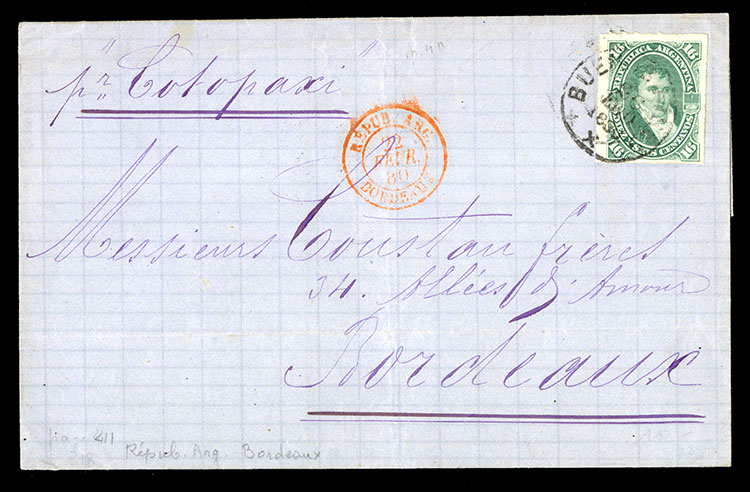 pr "Cotopaxi"
REPUB. ARG.
22
FEVR.
80
BORDEAUX
BUEN
16 REPUBLICA ARGENTINA 16
16 CENTAVOS 16
Messieurs Coustau frères
34. Allées d'Amour
Bordeaux
411
Répub. Arg. Bordeaux